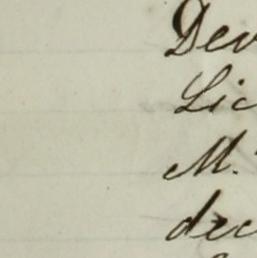 Dev
Lic
M.
dec